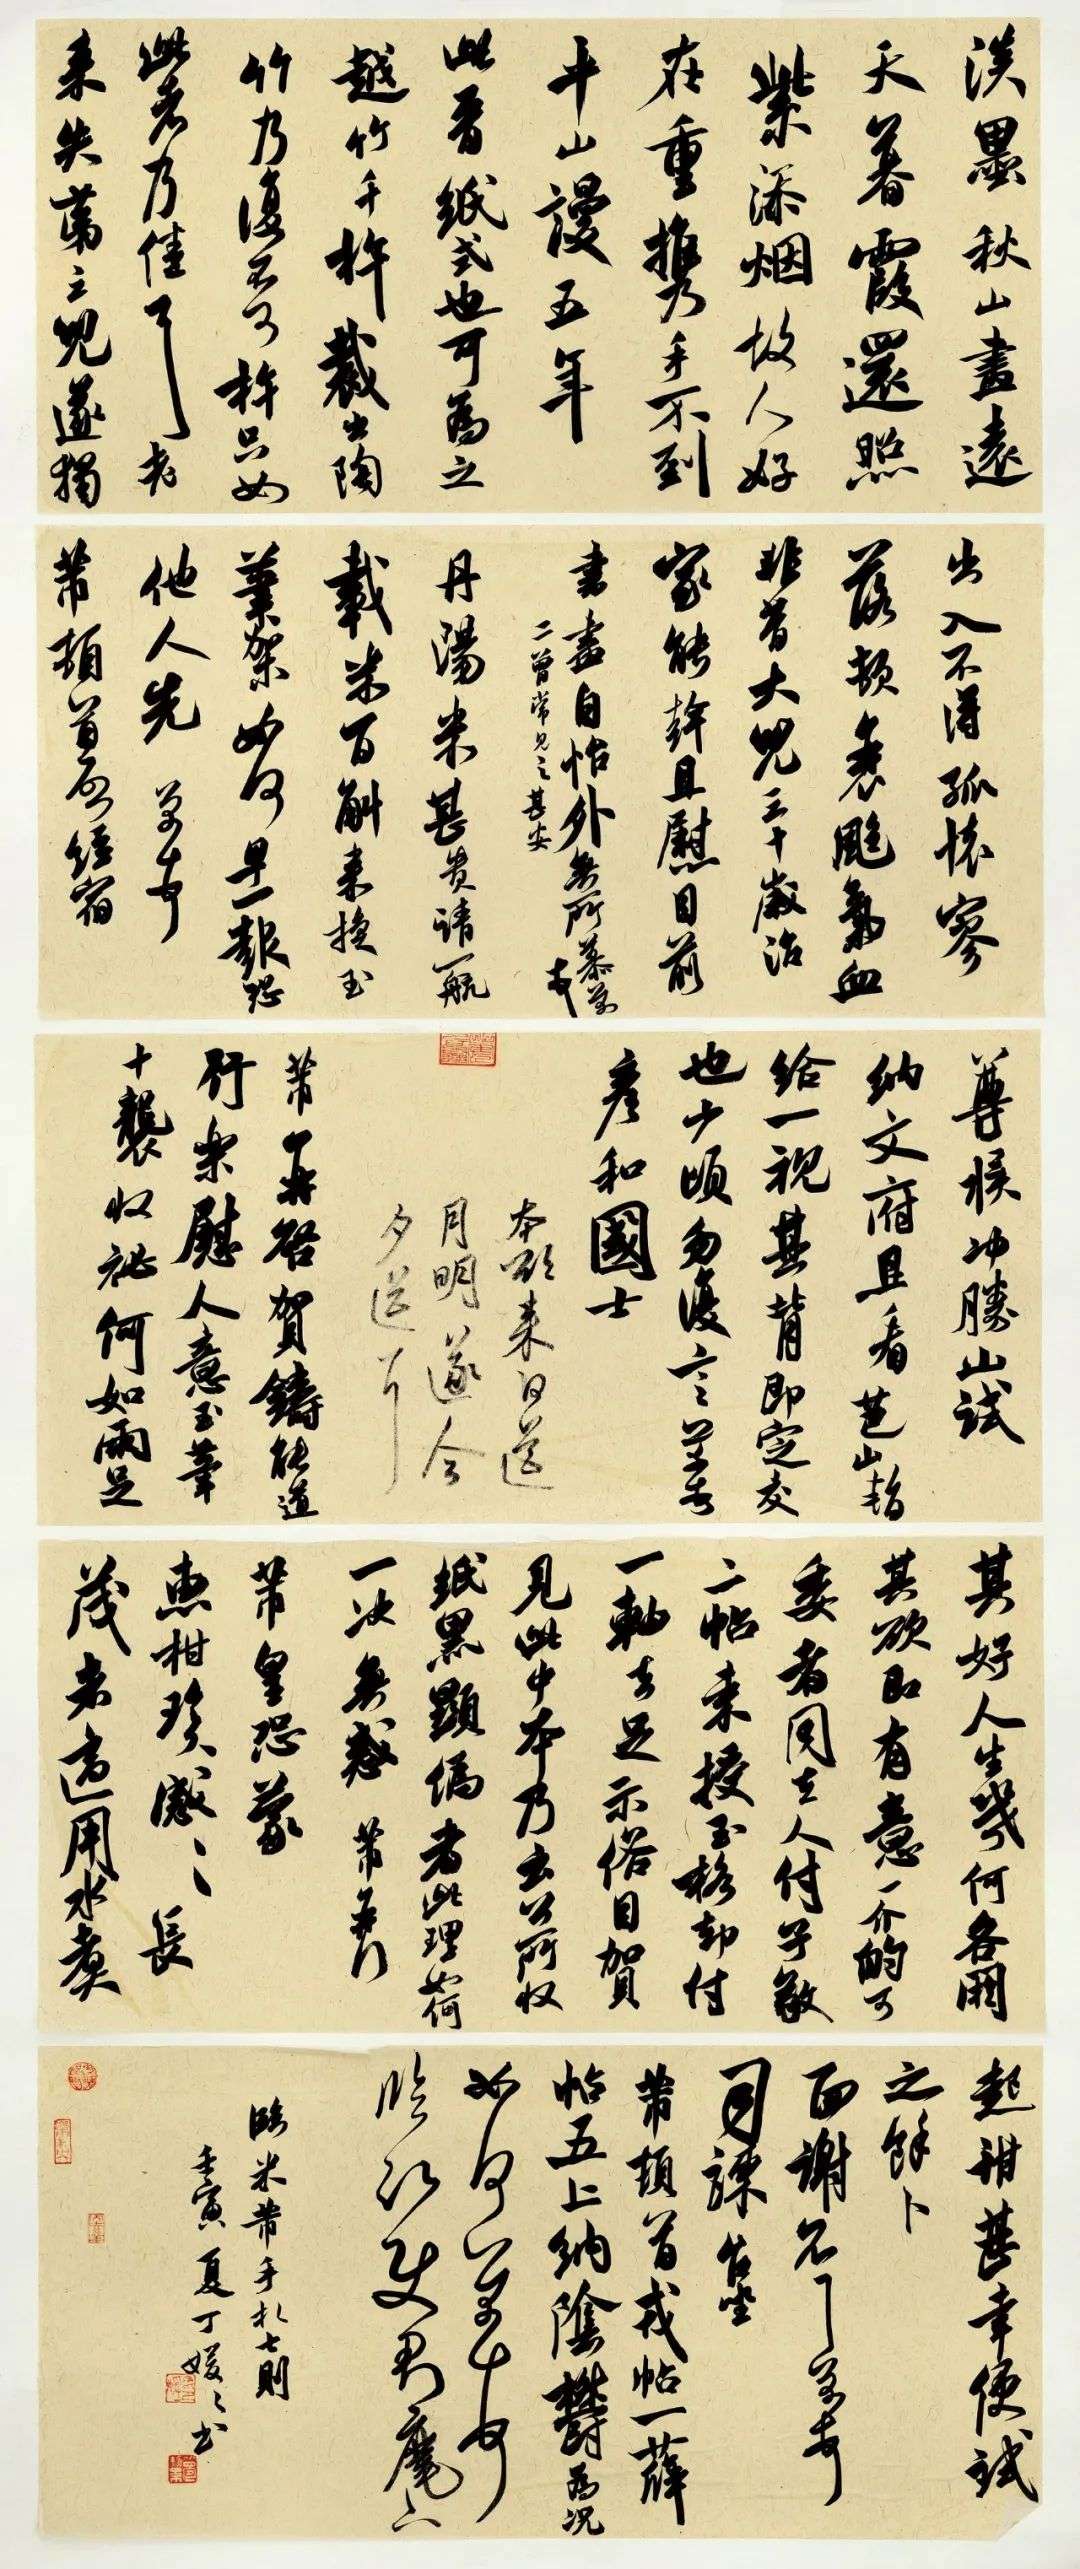 淡墨秋山畫遠
天暮霞還照
紫添烟故人好
在重攜手不到
平山謾五年
此晉紙式也可為之
越竹千杵裁出陶
竹乃復不可杵只如
此者乃佳耳老
來失第三兒遂獨
出入不得孤懷寥
落頓衰颶氣血
非昔大兒三十歲治
家能幹且慰目前
書畫自怡外無所慕
二曾常見之甚安
丹陽米甚貴請一航
載米百斛來換玉
筆架如何早一報恐
他人先
芾頓首啓經宿
尊候冲勝山試
納文府且看芭山暫
給一視其背即定交
也少頃勿復言
彥和國士
本欲來日送
月明遂今
夕送耳
芾再啓賀鑄能道
行樂慰人意玉筆
十襲收祕何如兩足
其好人生幾何各閼
其欲即有意一介的可
委者同去人付子敬
二帖來授玉格却付
一軸去足示俗目賀
見此中本乃云公所收
紙黑顯偽者此理如何
一決無惑芾再行
芾皇恐蒙
惠柑珍感〻長
茂者適用水煮
起甜甚幸便試
之餘卜
面謝不一
司諫台坐
芾頓首戎帖一薛
帖五上納陰鬱為況
如何芾頓首
臨沂使君麾下
臨米芾手札七則
壬寅夏丁媛〻书